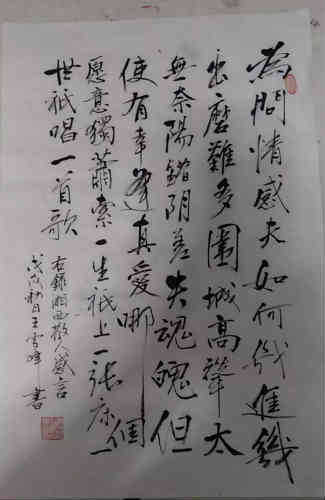 為問情感夫如何幾進幾
出磨難多圍城高聳太
無奈陽錯阴差失魂魄但
使有幸逢真愛哪個
愿意獨蕭索一生祇上一張床一
世祇唱一首歌
右錄湘西散人感言
戊戌秋日王雪峰書